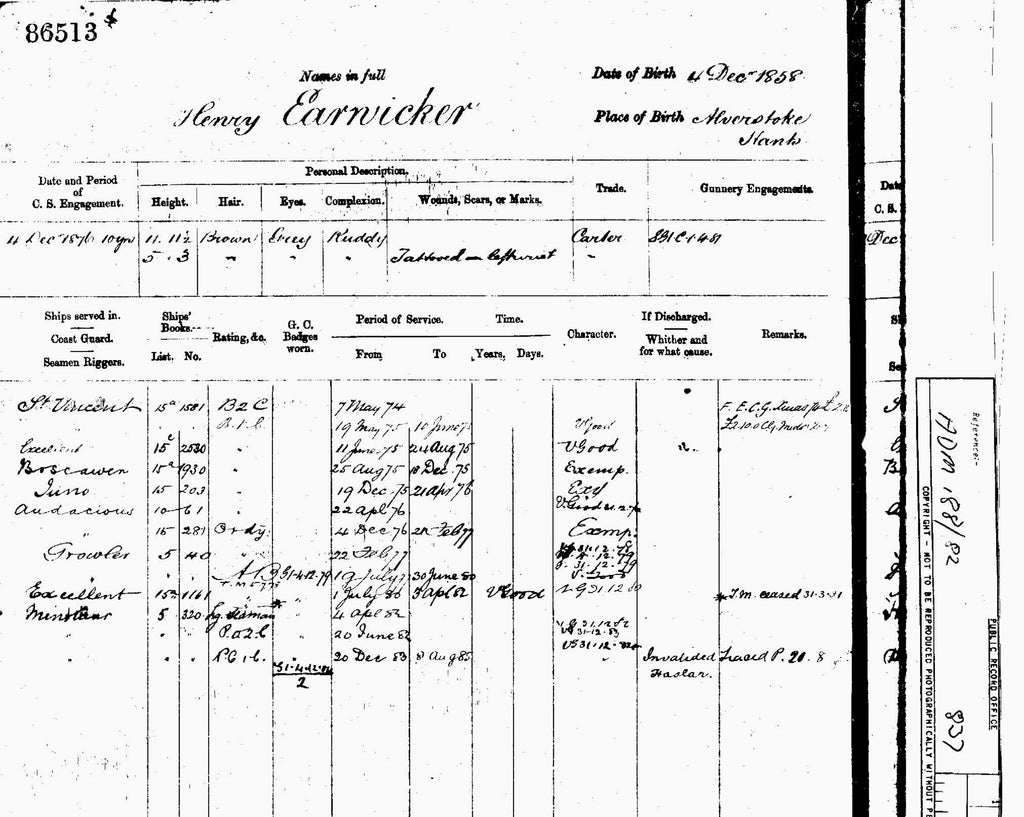 86513
Names in full
Henry Earwicker
Date of Birth 4 Decr 1858
Place of Birth Alverstoke
Hants
Date and Period of C. S. Engagement.
Personal Description.
Height. Hair. Eyes. Complexion. Wounds, Scars, or Marks.
Trade.
Gunnery Engagements.
4 Dec 1876 10 yrs 4. 11½ Brown Grey Ruddy Carter
5 . 3 " " " Tattooed on left wrist "
Ships served in.
Coast Guard.
Seamen Riggers.
Ships' Books.
List. No.
Rating, &c.
G. C. Badges worn.
Period of Service.
From To
Time.
Years. Days.
Character.
If Discharged.
Whither and for what cause.
Remarks.
St Vincent 15a 1581 B2C 7 May 74
" " B.1.C. 19 May 75 10 June 75 V Good
Excellent 15c 2530 " 11 June 75 24 Aug 75 V Good
Boscawen 15a 1930 " 25 Aug 75 18 Dec. 75 Exemp.
Juno 15 203 " 19 Dec. 75 21 Apl 76
Audacious 10 61 " 22 Apl 76
" 15 281 Ordy. 4 Dec 76 21 Feb 77 Exemp.
Growler 5 40 " 22 Feb 77
" " A B 19 July 77 30 June 80
Excellent 15 1161 " 1 July 80 3 Apl 82 V Good VG 31.12.80 * T.M. ceased 31.3.81
Minotaur 5 320 Lg. Seaman 4 Apl 82
" " P.O 2 C 20 June 82
" " P.O 1 C. 20 Dec 83 8 Aug 85 Invalided
Haslar.
2
Reference:-
ADM 188/82
PUBLIC RECORD OFFICE
837
COPYRIGHT - NOT TO BE REPRODUCED PHOTOGRAPHICALLY WITHOUT